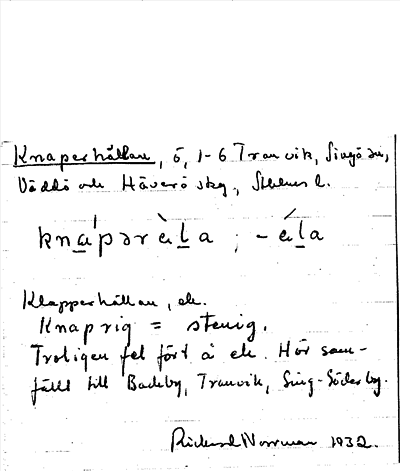 Knaperhällan, ö, 1-6 Tranvik, Singö sn,
Väddö och Häverö skg, Sthlms l.
knapəräla ; -äla
Klapperhällan, ek.
Knaprig = stenig.
Troligen fel fört å ek. Hör sam-
fällt till Backby, Tranvik, Sing-Söderby.
Rickard Norrman 1932.